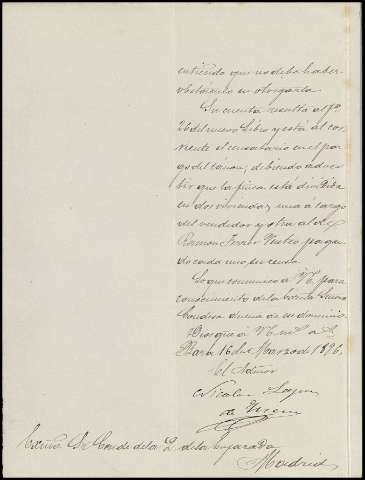 entiendo que no debe haber
obstáculo en otorgarla.
Su cuenta resulta al fº
26 del nuevo Libro y está al cor
riente el censatario en el pa
go del cánon; debiendo adver
tir que la finca está dividida
en dos viviendas, una á cargo
del vendedor y otra al de
Ramon Ferrer Verteo pagan
do cada uno, su renta
Lo que comunico á V. para
conocimiento de la Señora
Condesa dueña de su dominio.
Dios gue á V. ms. as.
16 de Marzo de 1896.
El Admor
Nicolas
de
Excmo Sr Conde de la de la
Madrid